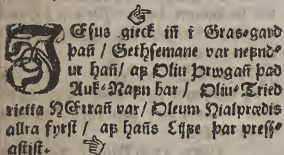 JEsus gieck iñ i Gras-gard
pañ/ Gethsemane var nefnd-
ur hañ/ aß Oliu Þrwgañ þad
Auk-Nafn bar/ Oliu-Tried
rietta HErrañ var/ Oleum Hialprædis
allra fyrst/ aß hañs Lijke þar press-
aſtiſt.